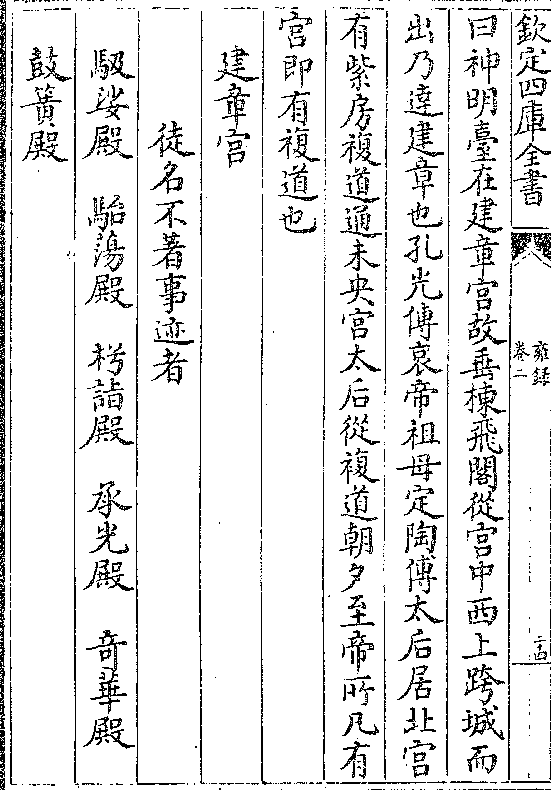 欽定四庫全書
雍錄
卷二
二十四
曰神明臺在建章宮故垂棟飛閣從宮中西上跨城而
出乃達建章也孔光傳哀帝祖母定陶傅太后居北宮
有紫房複道通未央宮太后從複道朝夕至帝所凡有
宮即有複道也
建章宮
徒名不著事迹者
馺娑殿 駘蕩殿 枍詣殿 承光殿 奇華殿
鼓簧殿